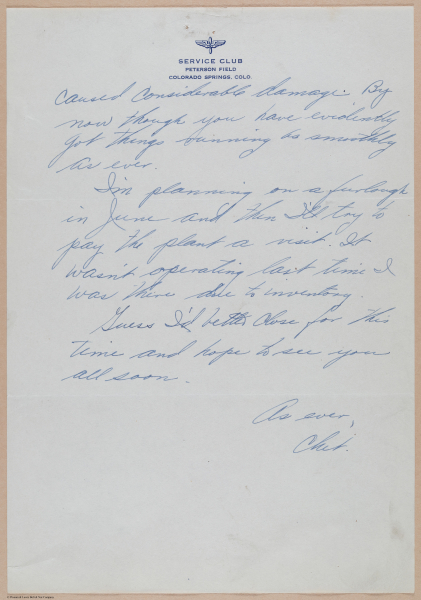 SERVICE CLUB
PETERSON FIELD
COLORADO SPRINGS, COLO.
caused considerable damage. By
now though you have evidently
got things running as smoothly
as ever.
I'm planning on a furlough
in June and then I'll try to
pay the plant a visit. It
wasn't operating last time I
was there due to inventory.
Guess I'd better close for this
time and hope to see you
all soon.
As ever,
Chet.